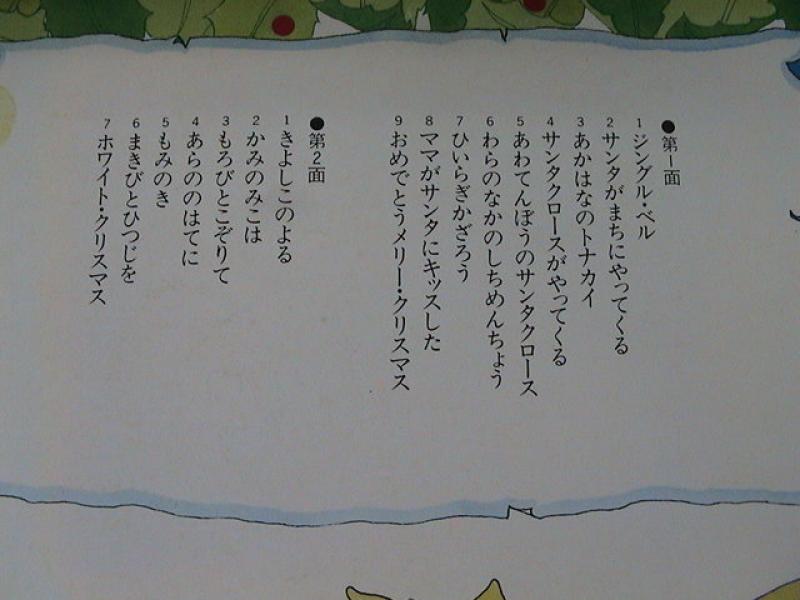 ●第1面
1 ジングル・ベル
2 サンタがまちにやってくる
3 あかはなのトナカイ
4 サンタクロースがやってくる
5 あわてんぼうのサンタクロース
6 わらのなかのしちめんちょう
7 ひいらぎかざろう
8 ママがサンタにキッスした
9 おめでとうメリー・クリスマス
●第2面
1 きよしこのよる
2 かみのみこは
3 もろびとこぞりて
4 あらののはてに
5 もみのき
6 まきびとひつじを
7 ホワイト・クリスマス